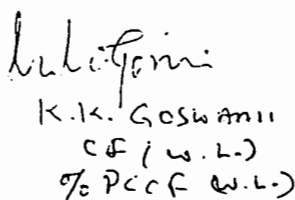 K.K. GOSWAMI
CF (W.L.)
% PCCF (W.L.)